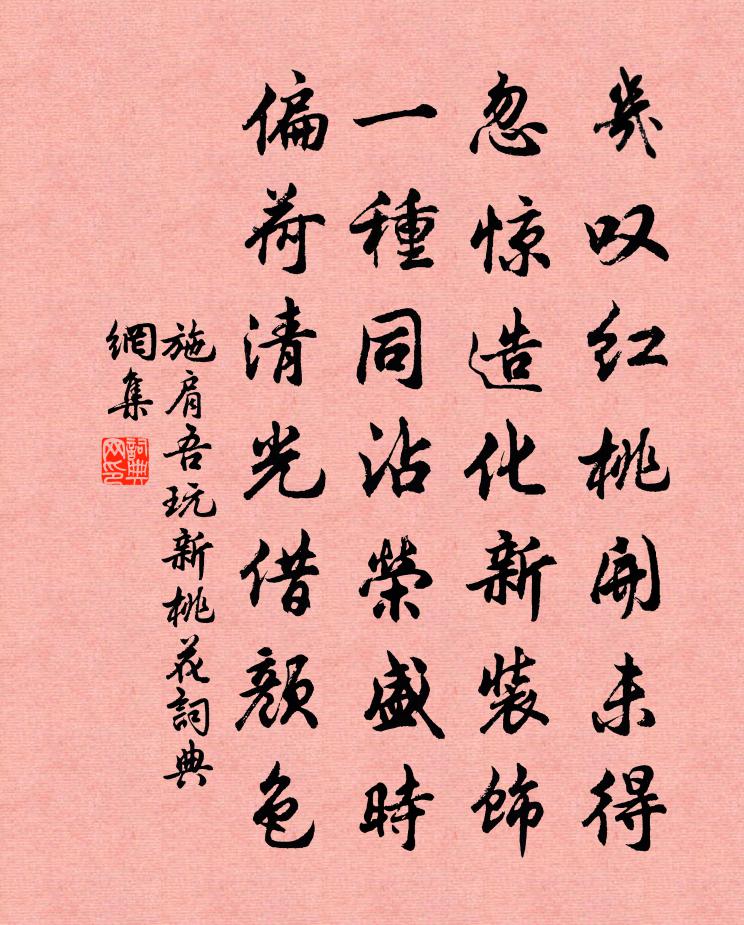 几叹红桃開未得
忽惊造化新裝飾
一種同沾榮盛時
偏荷清光借顔色
施肩吾玩新桃花詞典
網集
詞典
网印